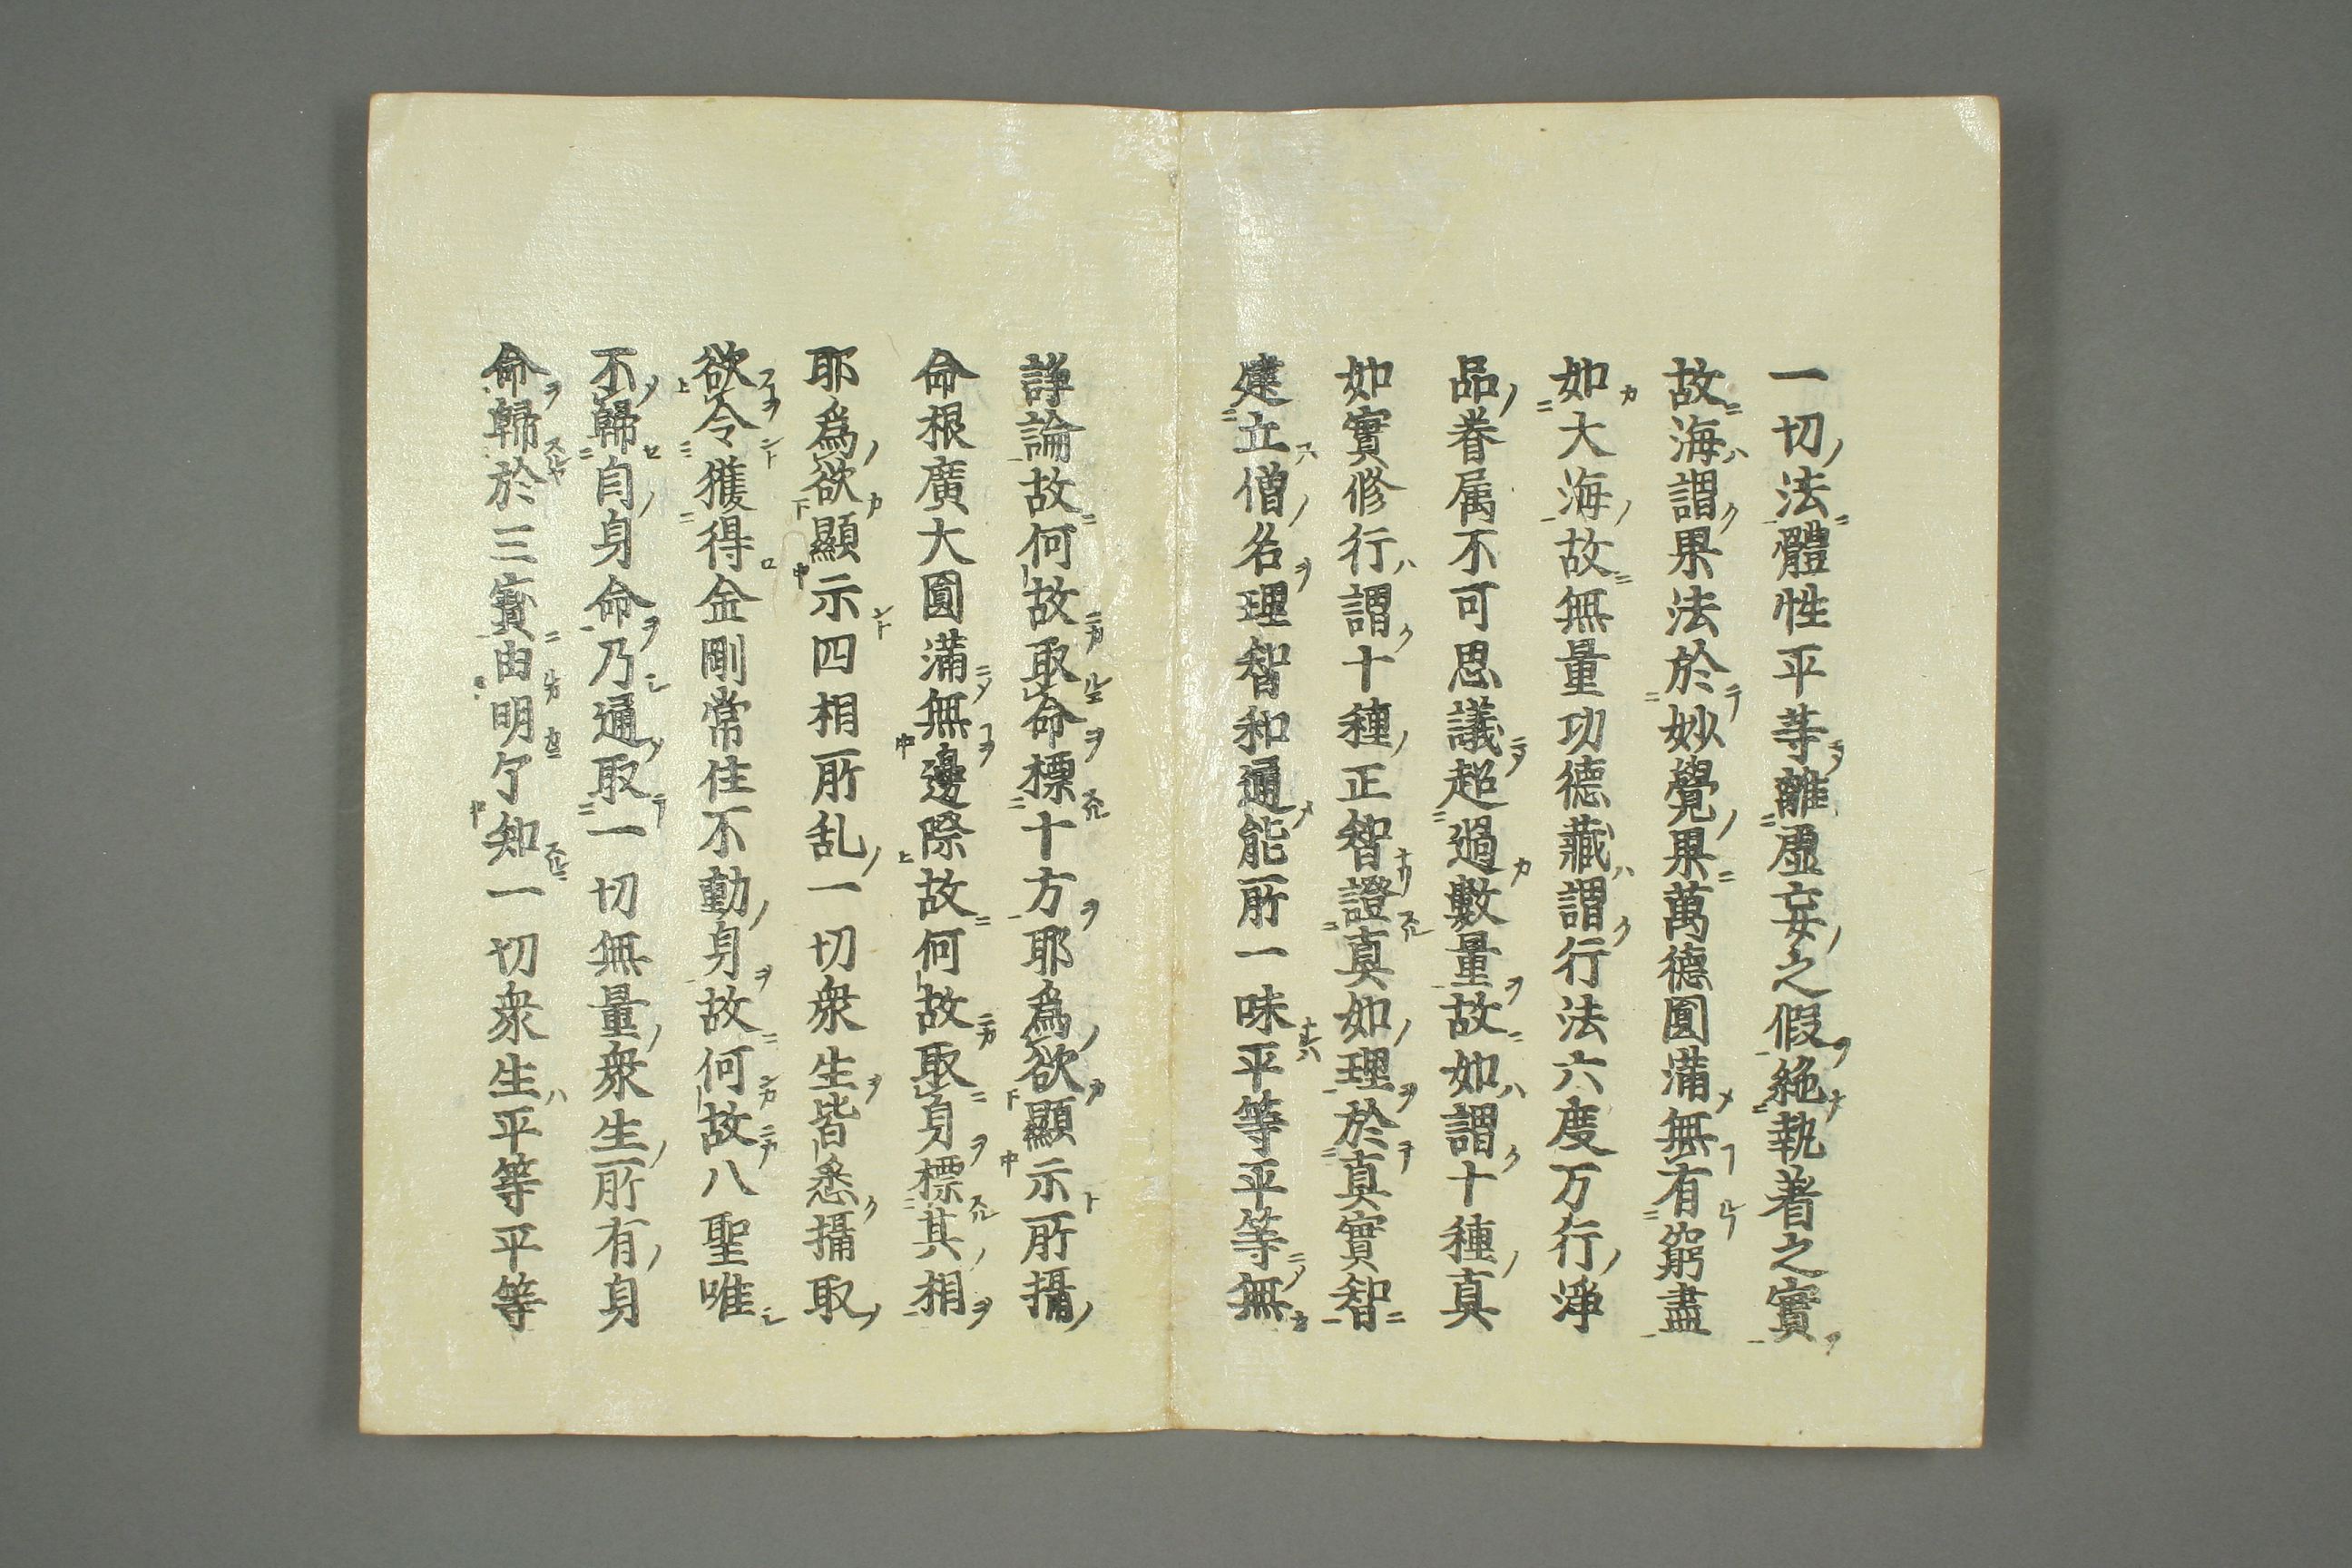 一切法體性平等離虛妄之假絶執著之實
故海謂果法於妙覺果萬德圓滿無有窮盡
如大海故無量功德藏謂行法六度万行淨
品眷属不可思議超過數量故如謂十種真
如實修行謂十種正智證真如理於真實智
建立僧名理智和通能所一味平等平等無
諍論故何故取命標十方耶爲欲顯示所攝
命根廣大圓滿無邊際故何故取身標其相
耶爲欲顯示四相所乱一切衆生皆悉攝取
欲令獲得金剛常住不動身故何故八聖唯
不歸自身命乃通取一切無量衆生所有身
命歸於三寳由明了知一切衆生平等平等